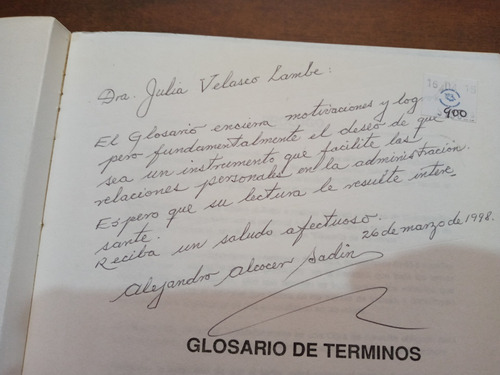 Dra. Julia Velasco Lambe:
El Glosario encierra motivaciones y log
pero fundamentalmente el deseo de que
sea un instrumento que facilite las
relaciones personales en la administración.
Espero que su lectura le resulte intere-
sante.
Reciba un saludo afectuoso.
26 de marzo de 1998.
Alejandro Alcocer Sadin
900
GLOSARIO DE TERMINOS